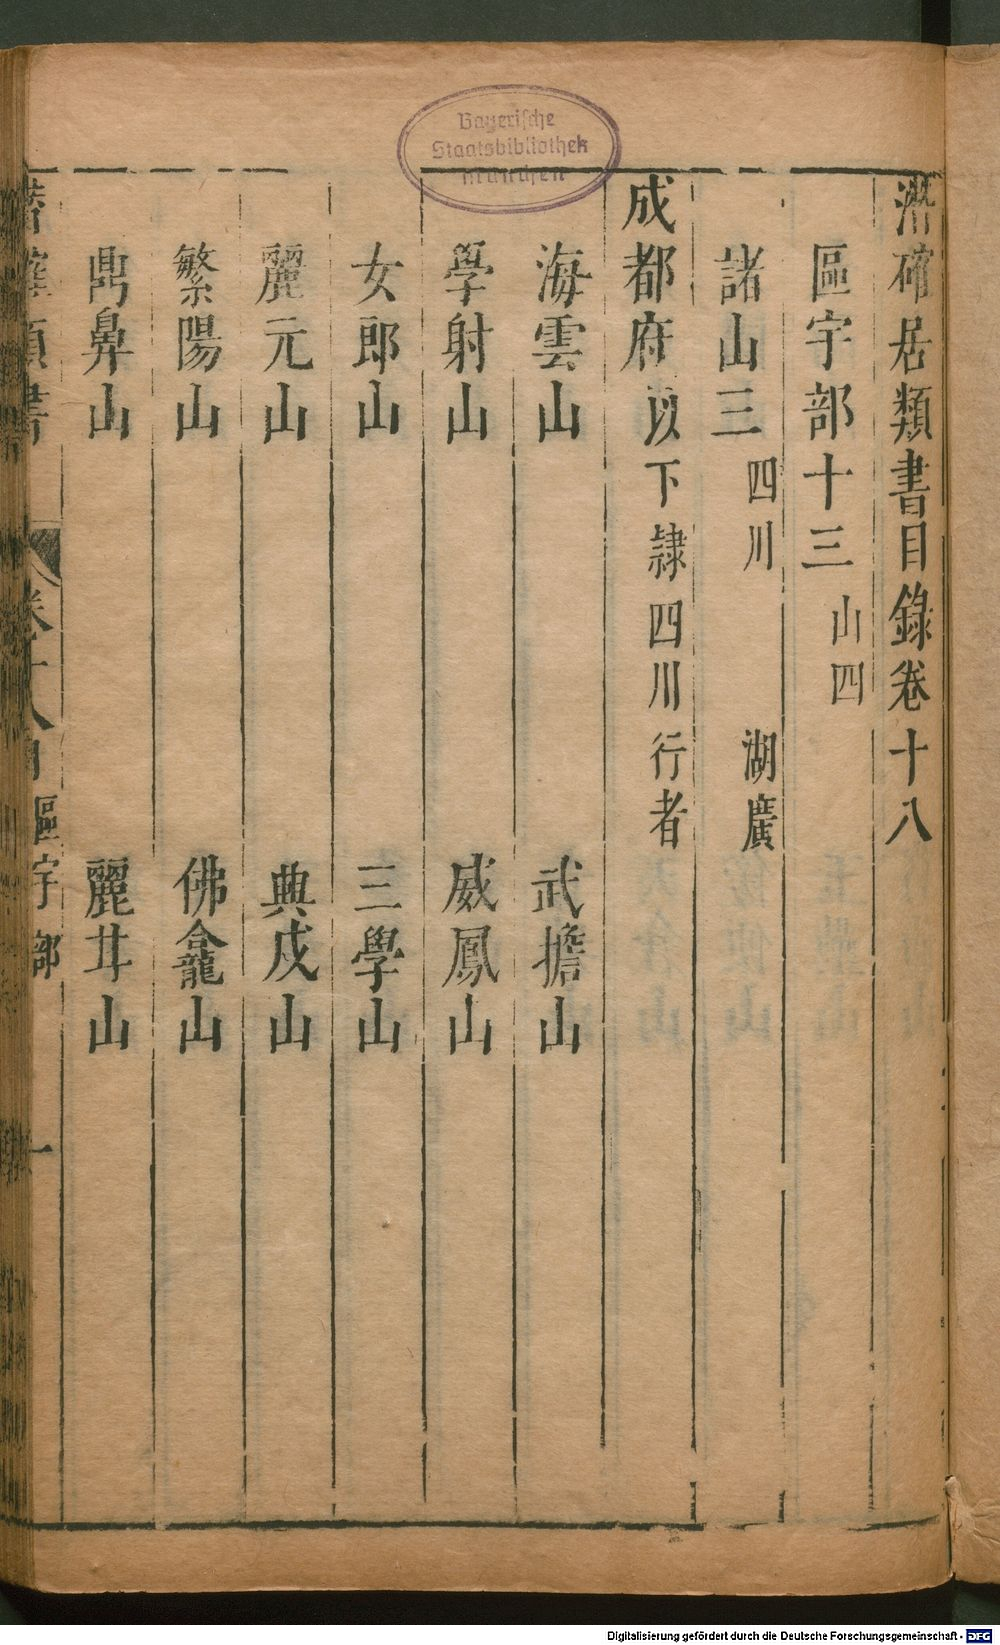 潛確居類書目錄卷十八
區宇部十三 山四
諸山三 四川 湖廣
成都府 以下隷四川行者
海雲山 武擔山
學射山 威鳳山
女郎山 三學山
麗元山 典戍山
繁陽山 佛龕山
鼎鼻山 麗甘山
卷十八目 區宇部 一
Bayerische
Staatsbibliothek
München
Digitalisierung gefördert durch die Deutsche Forschungsgemeinschaft - DFG